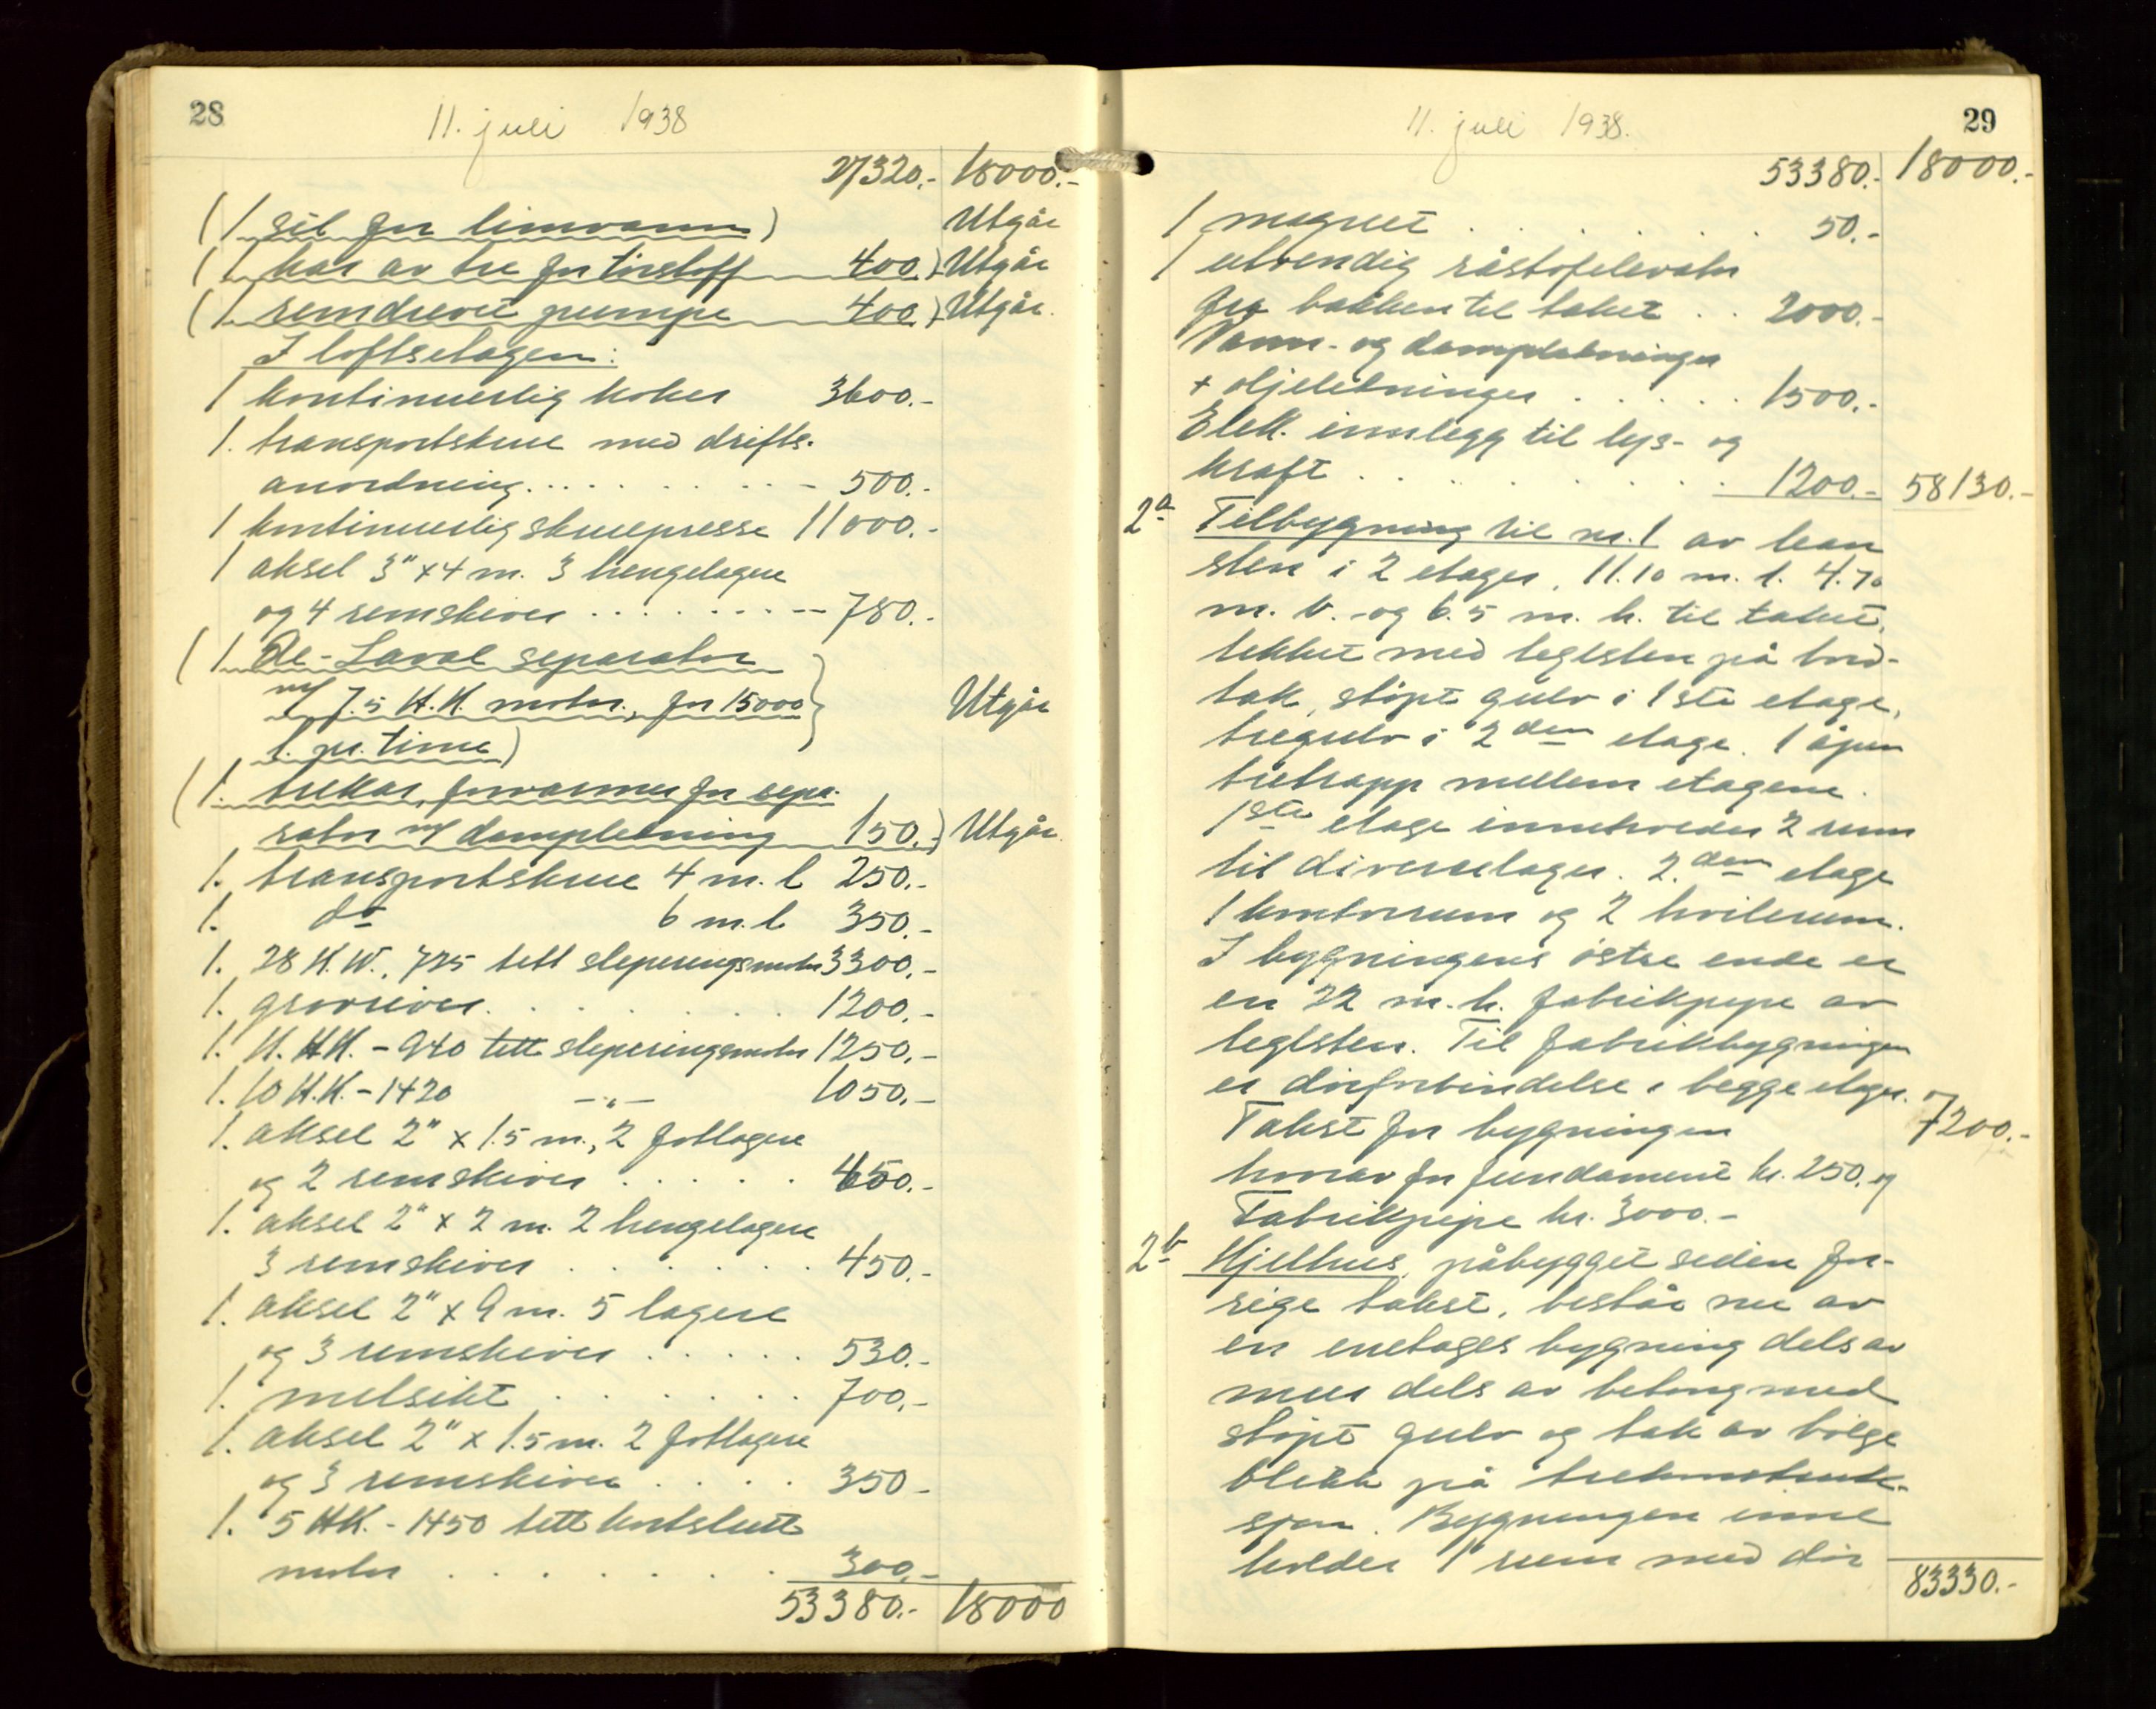 28
11. juli 1938
27320.- 18000.-
(1. sil for limvann) Utgår
(1. kar av tre for tørstoff 400.) Utgår
(1. remdrevet pumpe 400.) Utgår.
I loftsetagen:
1 kontinuerlig koker 3600.-
1. transportskrue med drifts-
anordning. . . . . . . . 500.-
1 kontinuerlig skruepresse 11000.-
1 aksel 3" x 4 m. 3 hengelagere
og 4 remskiver . . . . . . . 780.-
(1. De-Laval separator
m/ 7.5 H.K. motor, for 15000 } Utgår
l. pr. time)
(1. trekar, forvarmer for sepa-
rator m/ dampledning 150.-) Utgår.
1. transportskrue 4 m. l 250.-
1. do 6 m. l. 350.-
1. 28 K.W., 725 tett sleperingsmotor 3300.-
1. grovriver . . . . . . 1200.-
1. 11. H.K. - 940 tett sleperingsmotor 1250.-
1. 10 H.K. - 1420 -"- 1050.-
1. aksel 2" x 1.5 m., 2 fotlagere
og 2 remskiver . . . . . 450.-
1. aksel 2" x 2 m. 2 hengelagere
3 remskiver . . . . . . 450.-
1. aksel 2" x 9 m. 5 lagere
og 3 remskiver . . . . . 530.-
1. melsikt . . . . . . 700.-
1. aksel 2" x 1.5 m. 2 fotlagere
og 3 remskiver . . . . 350-
1. 5 HK. - 1450 tett kortslutt
motor . . . . . . . . 300.-
53380.- 18000
29
11. juli 1938.
53380.- 18000.-
1 magnet . . . . . . . 50.-
1 utvendig råstofelevator
fra bakken til taket . . 2000.-
Vann- og dampledninger
+ oljeledninger . . . . . 1500.-
Elek. innlegg til lys- og
kraft . . . . . . . . . 1200.- 58130.-
2a Tilbygning til nr. 1 av lean
sten i 2 etager, 11.10 m. l. 4.70
m. b. og 6.5 m. h. til taket,
tekket med teglsten på bord-
tak, støpt gulv i 1ste etage,
tregulv i 2den etage. 1 åpen
tretrapp mellem etagene.
1ste etage inneholder 2 rum
til diverselager. 2.den etage
1 kontorrum og 2 hvilerum.
I bygningens østre ende er
en 22 m. h. fabrikpipe av
teglsten. Til fabrikbygningen
er dørforbindelse i begge etager.
Takst for bygningen 7200.-
hvorav for fundament kr. 250. og
Fabrikpipe kr. 3000.-
2b Kjelhus, påbygget siden for-
rige takst, består nu av
en enetages bygning dels av
mur dels av betong med
støpt gulv og tak av bølge
blikk på trekonstruk-
sjon. Bygningen inne
holder 1 rum med dør
83330.-